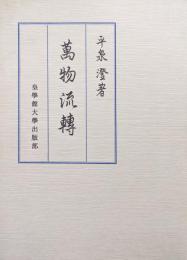 平泉澄著
萬物流轉
皇學館大學出版部